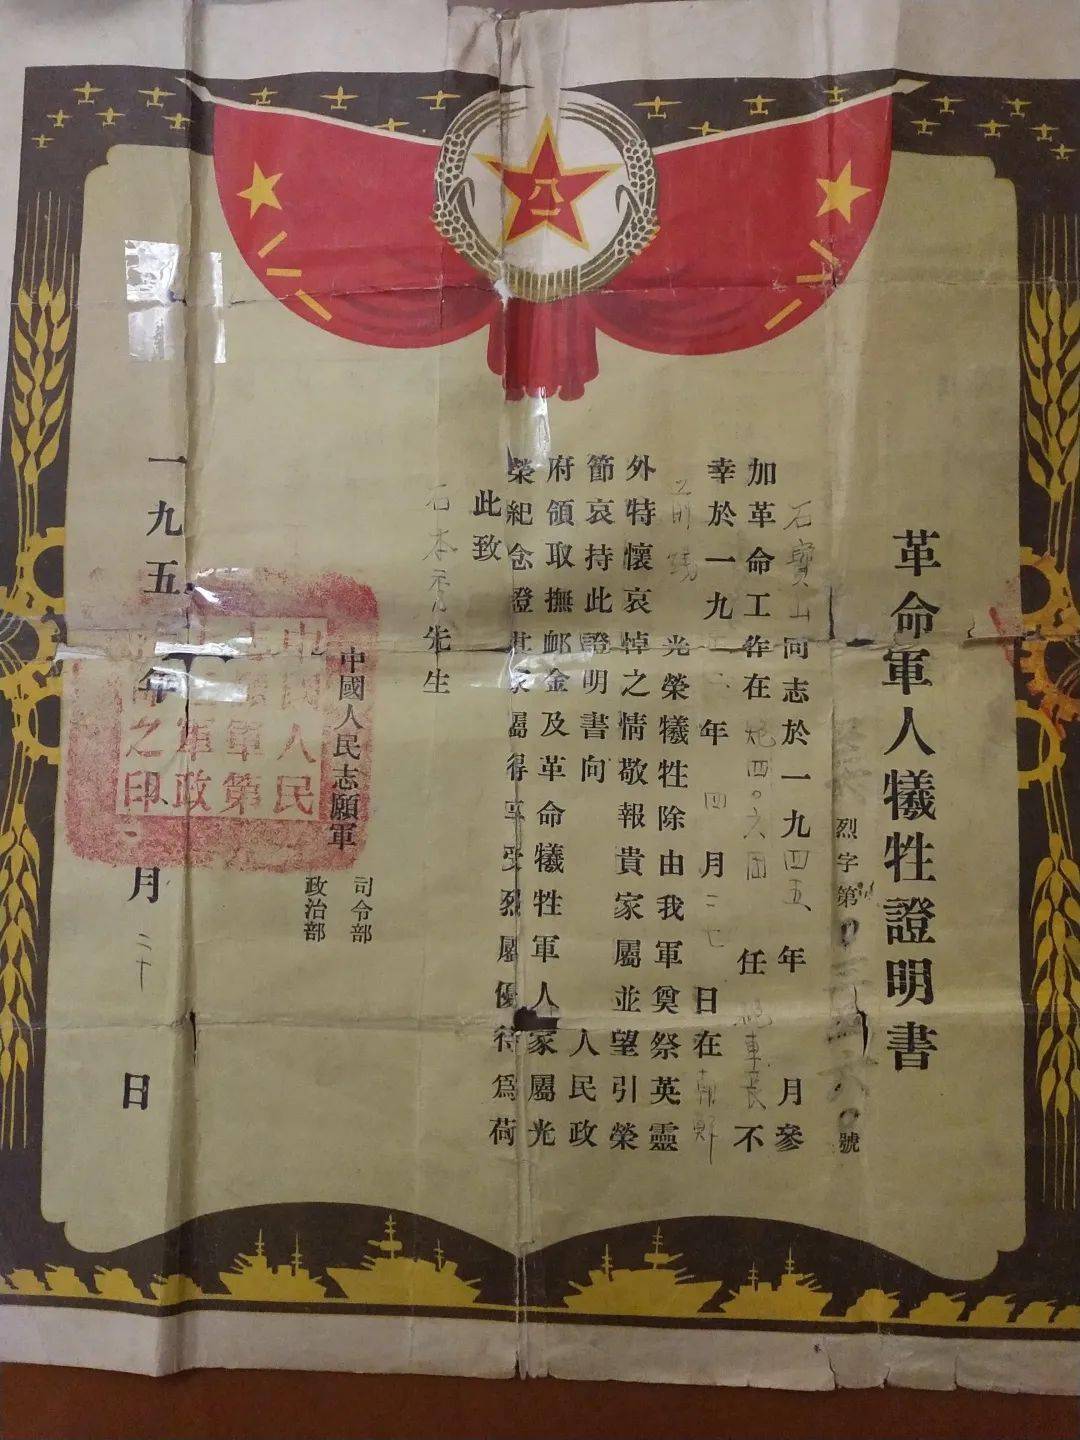 八一
革命軍人犧牲證明書
烈字第 號
石寶山同志於一九四五年 月參
加革命工作在炮四〇六團 任炮車長不
幸於一九五 年四月二七日在朝鮮
前线 光榮犧牲除由我軍奠祭英靈
外特懷哀悼之情敬報貴家屬並望引榮
節哀持此證明書向 人民政
府領取撫卹金及革命犧牲軍人家屬光
榮紀念證書家屬得享受烈屬優待爲荷
此致
石本 先生
中國人民志願軍
司令部
政治部
中國人民
志願軍第
軍政
之印
一九五 年 月二十日